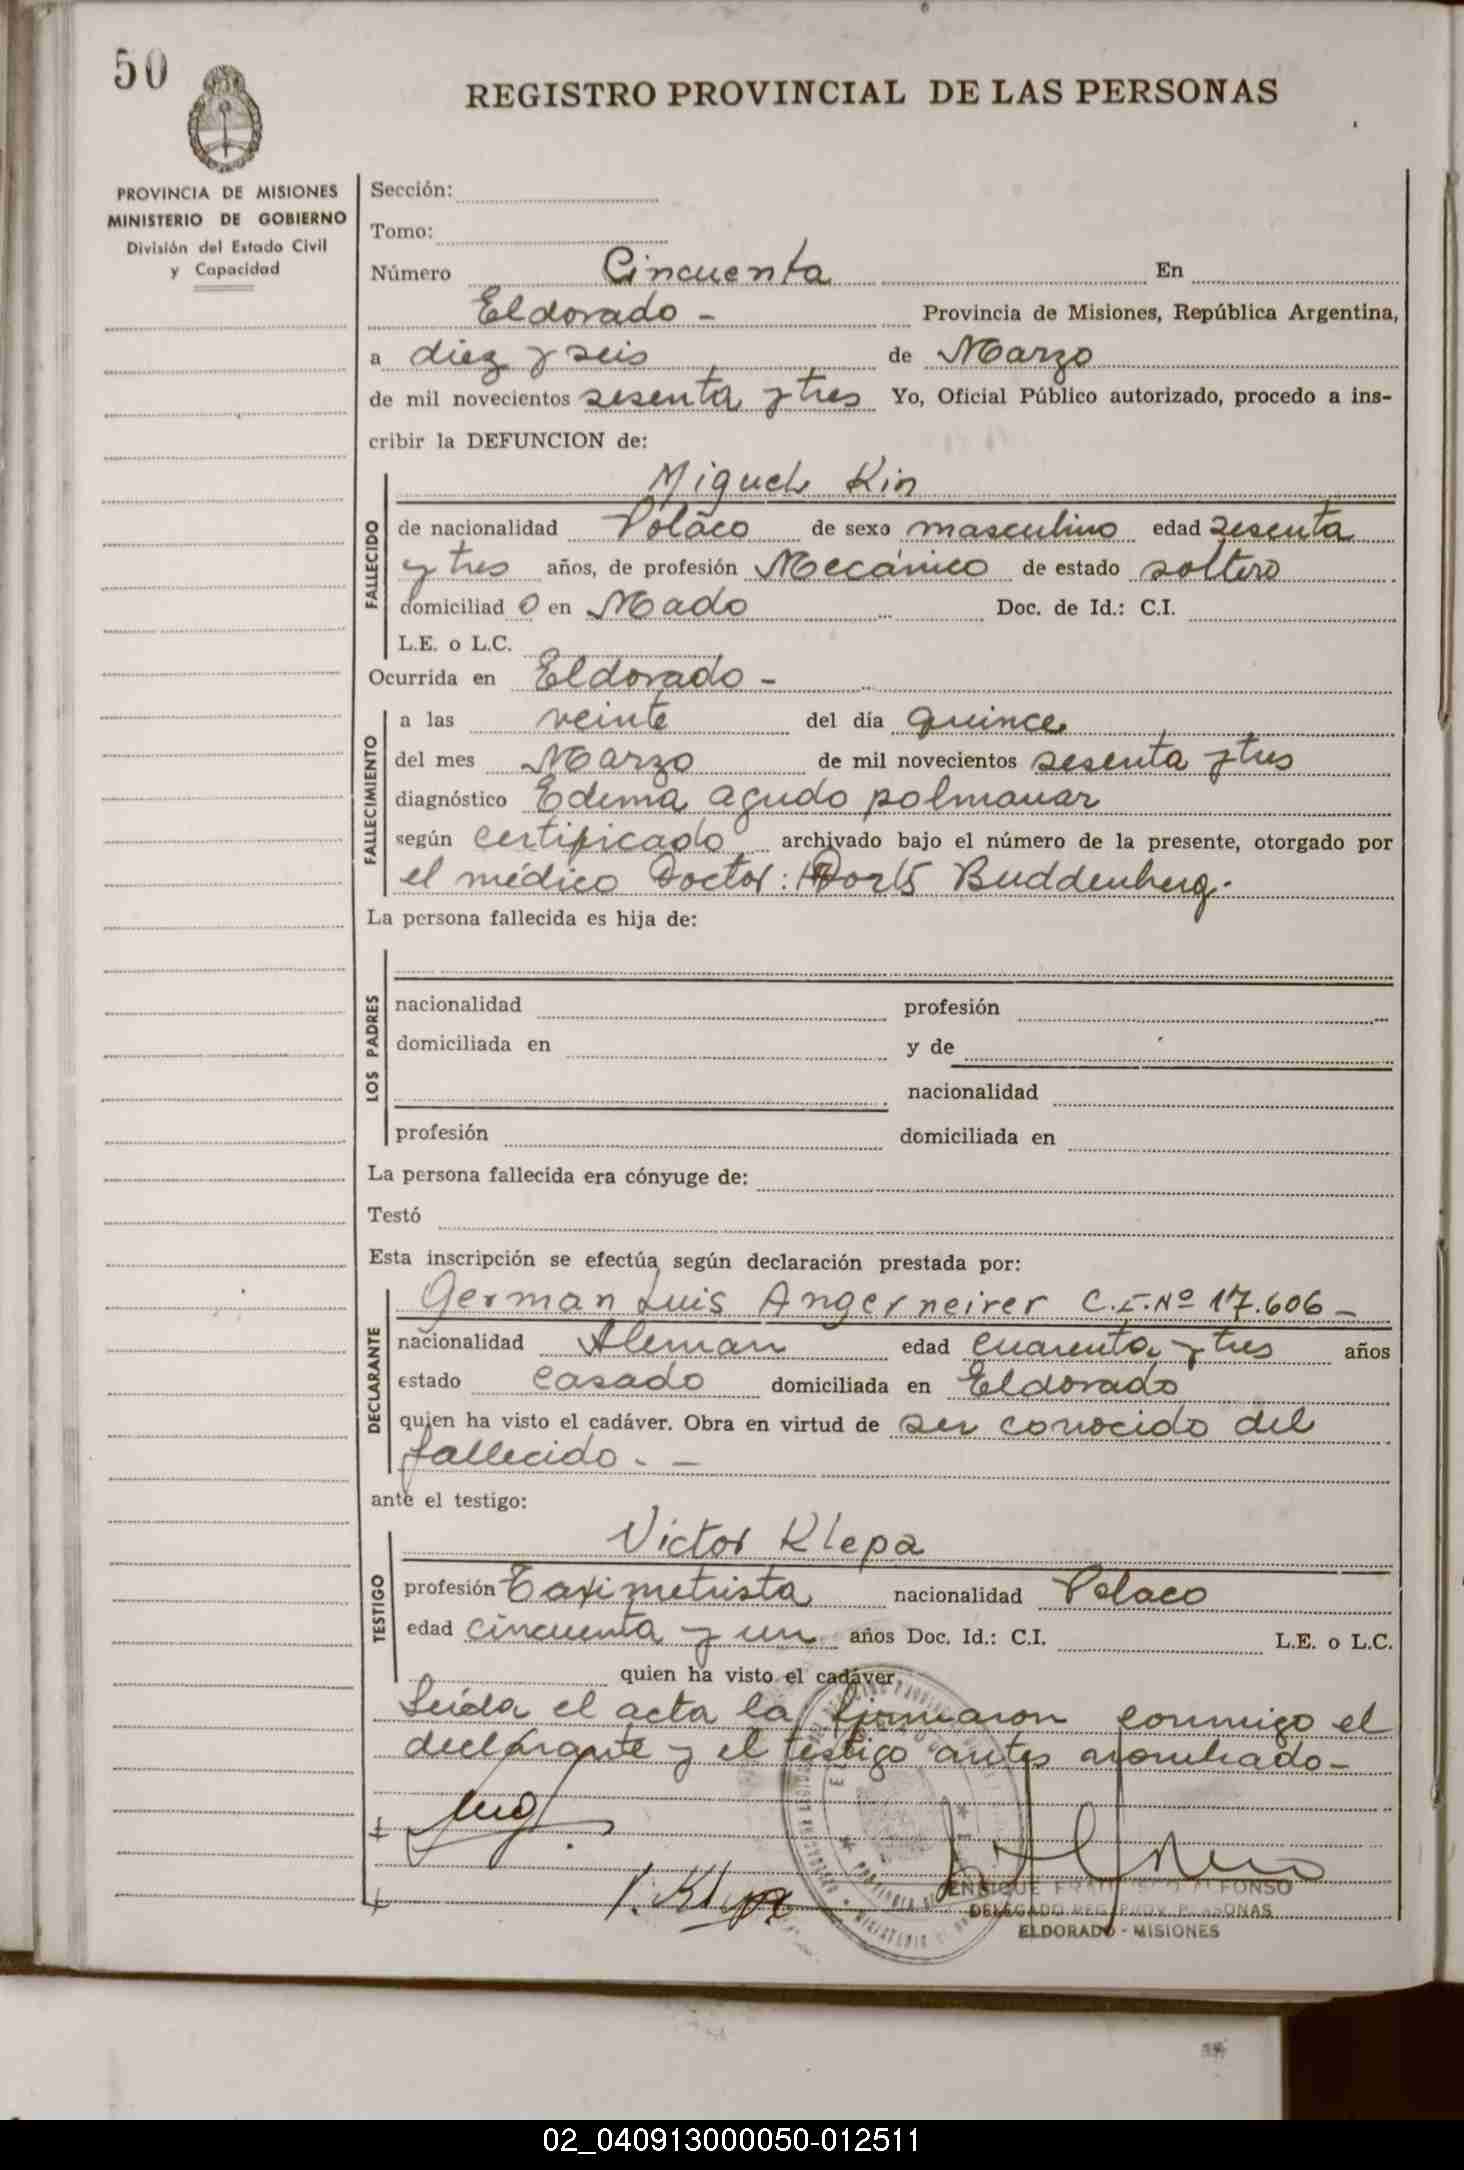 50
REGISTRO PROVINCIAL DE LAS PERSONAS
PROVINCIA DE MISIONES
MINISTERIO DE GOBIERNO
División del Estado Civil
y Capacidad
Sección:
Tomo:
Número Cincuenta En
Eldorado - Provincia de Misiones, República Argentina,
a diez y seis de Marzo
de mil novecientos sesenta y tres Yo, Oficial Público autorizado, procedo a ins-
cribir la DEFUNCION de:
Miguel Kin
FALLECIDO
de nacionalidad Polaco de sexo masculino edad sesenta
y tres años, de profesión Mecánico de estado soltero
domiciliad o en Mado Doc. de Id.: C.I.
L.E. o L.C.
Ocurrida en Eldorado -
FALLECIMIENTO
a las veinte del día quince
del mes Marzo de mil novecientos sesenta y tres
diagnóstico Edema agudo polmonar
según certificado archivado bajo el número de la presente, otorgado por
el médico Doctor: Buddenberg.
La persona fallecida es hija de:
LOS PADRES
nacionalidad profesión
domiciliada en y de
nacionalidad
profesión domiciliada en
La persona fallecida era cónyuge de:
Testó
Esta inscripción se efectúa según declaración prestada por:
DECLARANTE
German Luis Angerneirer C.I.Nº 17.606 -
nacionalidad Aleman edad cuarenta y tres años
estado casado domiciliada en Eldorado
quien ha visto el cadáver. Obra en virtud de ser conocido del
fallecido. -
ante el testigo:
TESTIGO
Victor Klepa
profesión Taximetrista nacionalidad Polaco
edad cincuenta y un años Doc. Id.: C.I. L.E. o L.C.
quien ha visto el cadáver
Leída el acta la firmaron conmigo el
declarante y el testigo antes nombrado -
V. Klepa
ENRIQUE FRANCISCO ALFONSO
DELEGADO REG. PROV. PERSONAS
ELDORADO - MISIONES
02_040913000050-012511